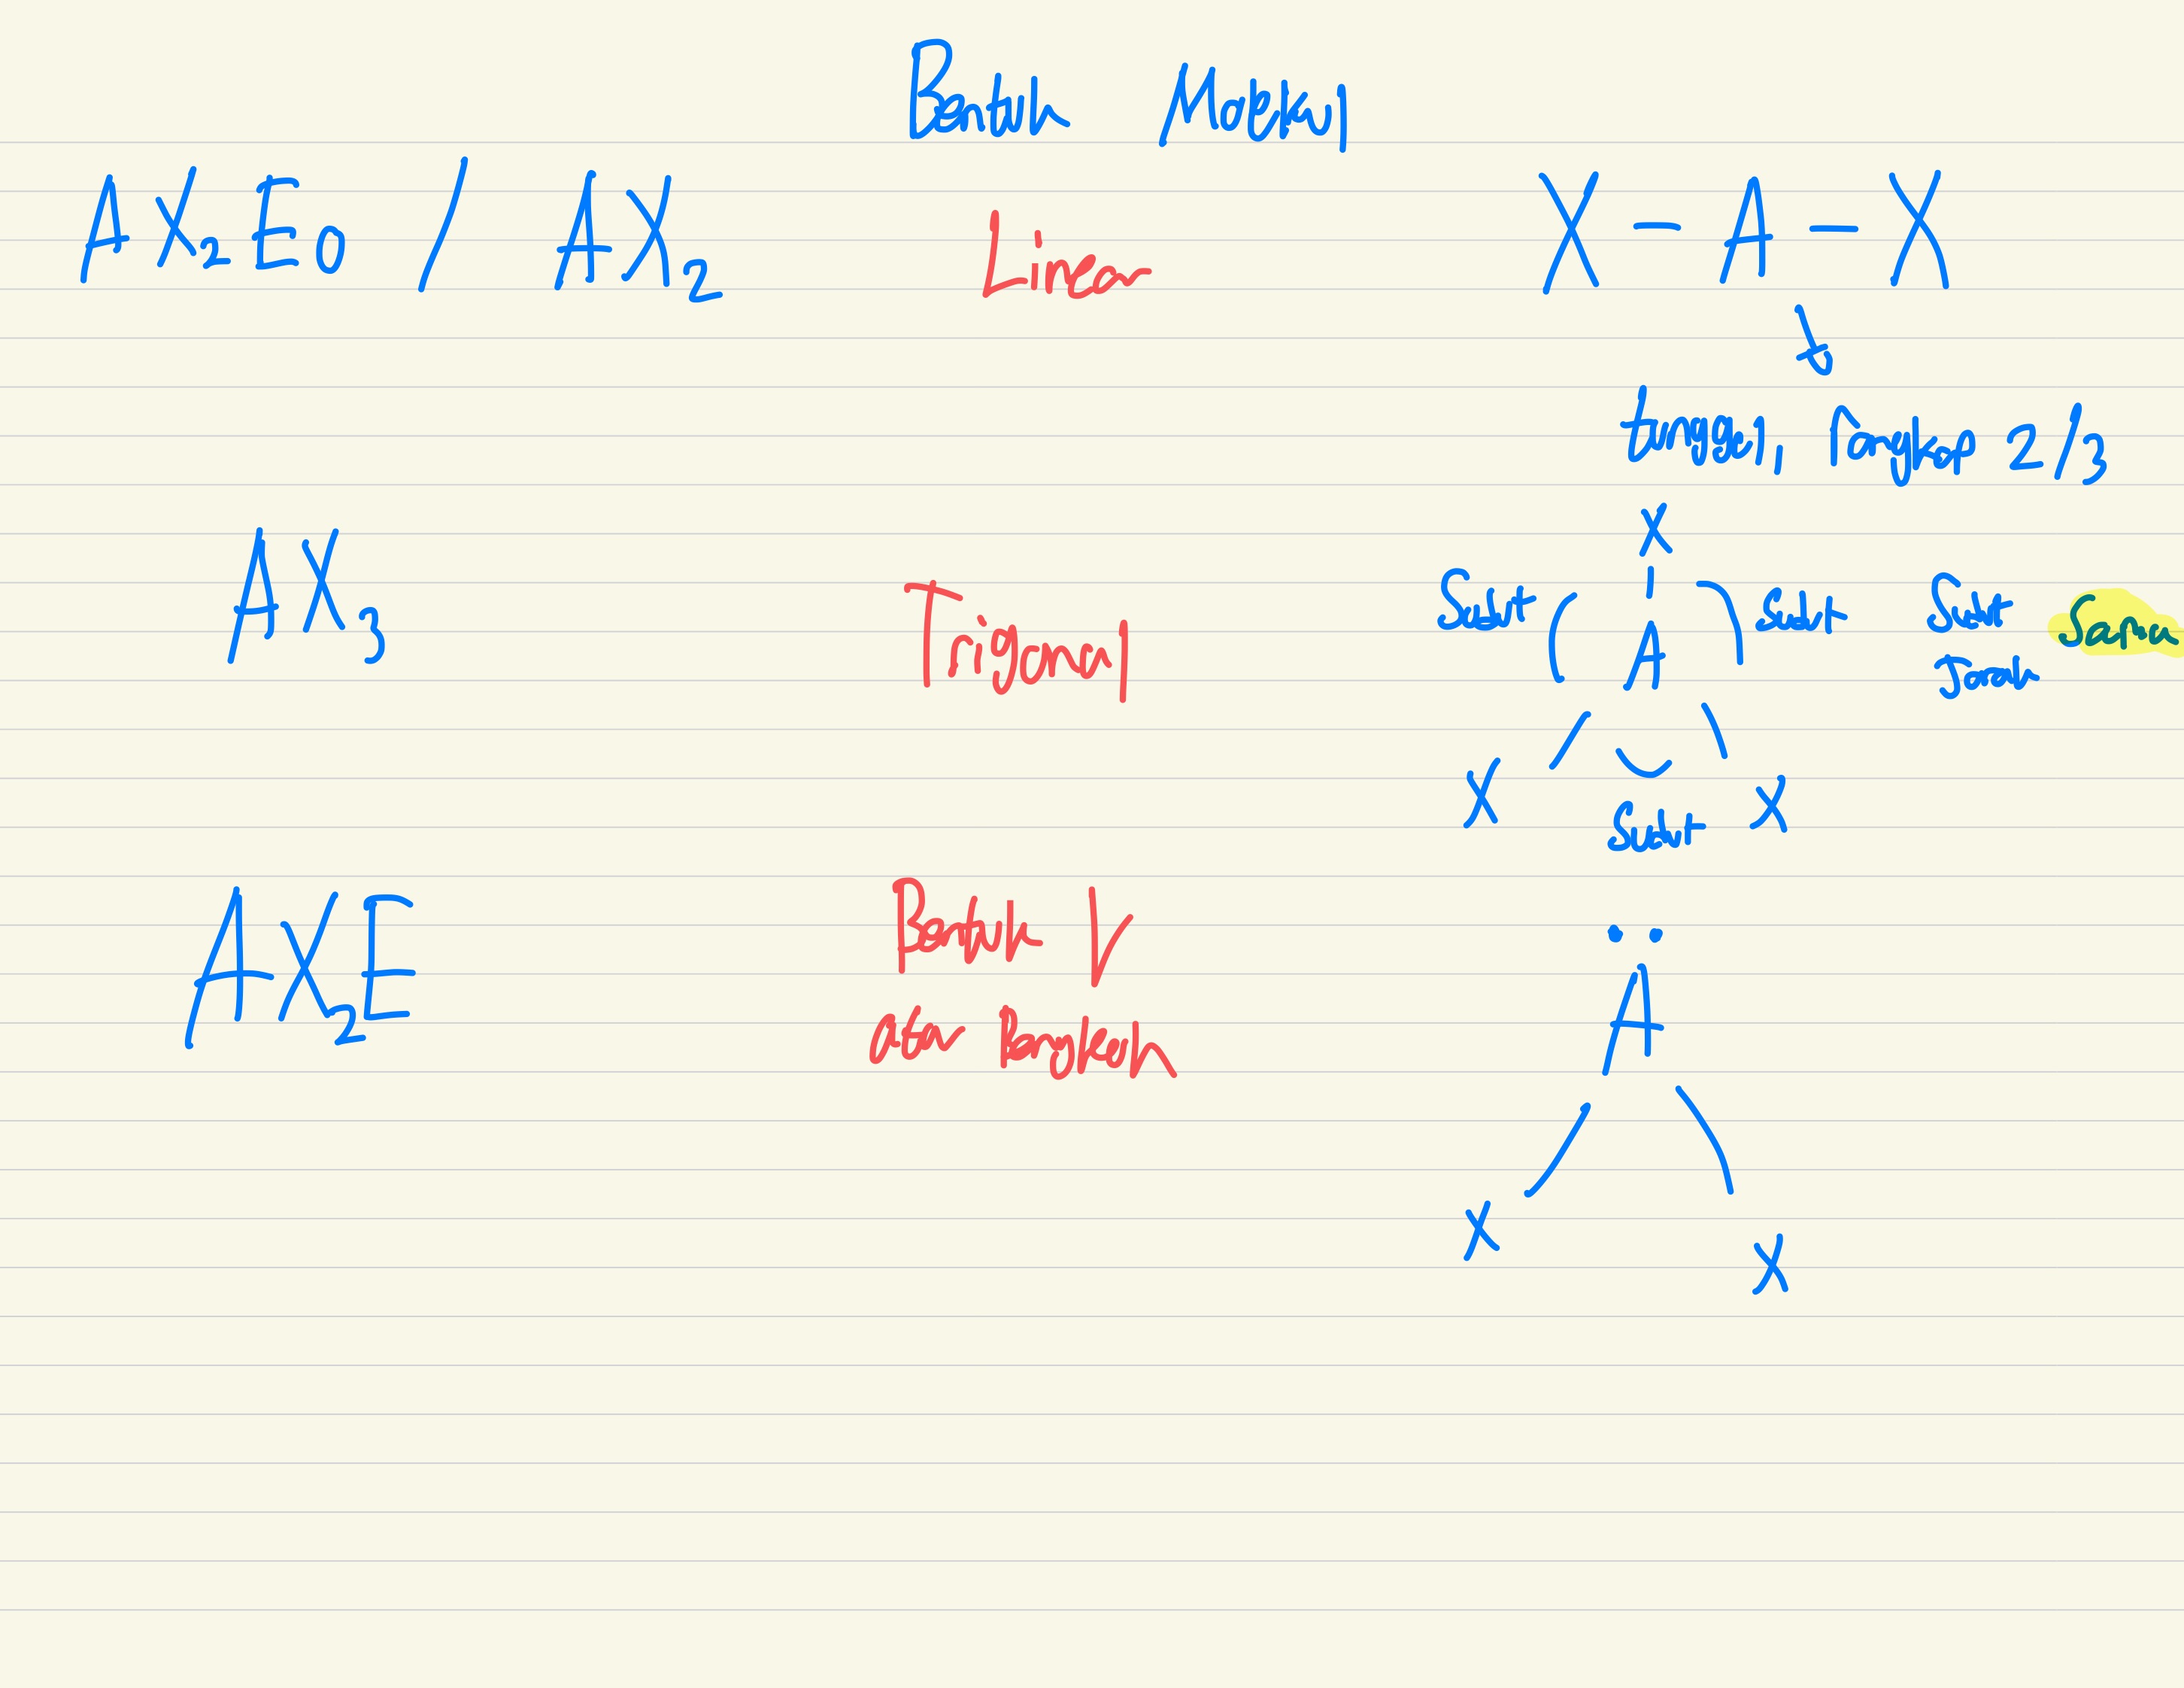 Bentuk Molekul
AX2E0 / AX2 Linear X - A - X
tunggal, rangkap 2/3
X
AX3 Trigonal Sudut A Sudut Sudut Sama
Jarak
X X
Sudut
AX2E Bentuk V
atau Bengkok
A
X X